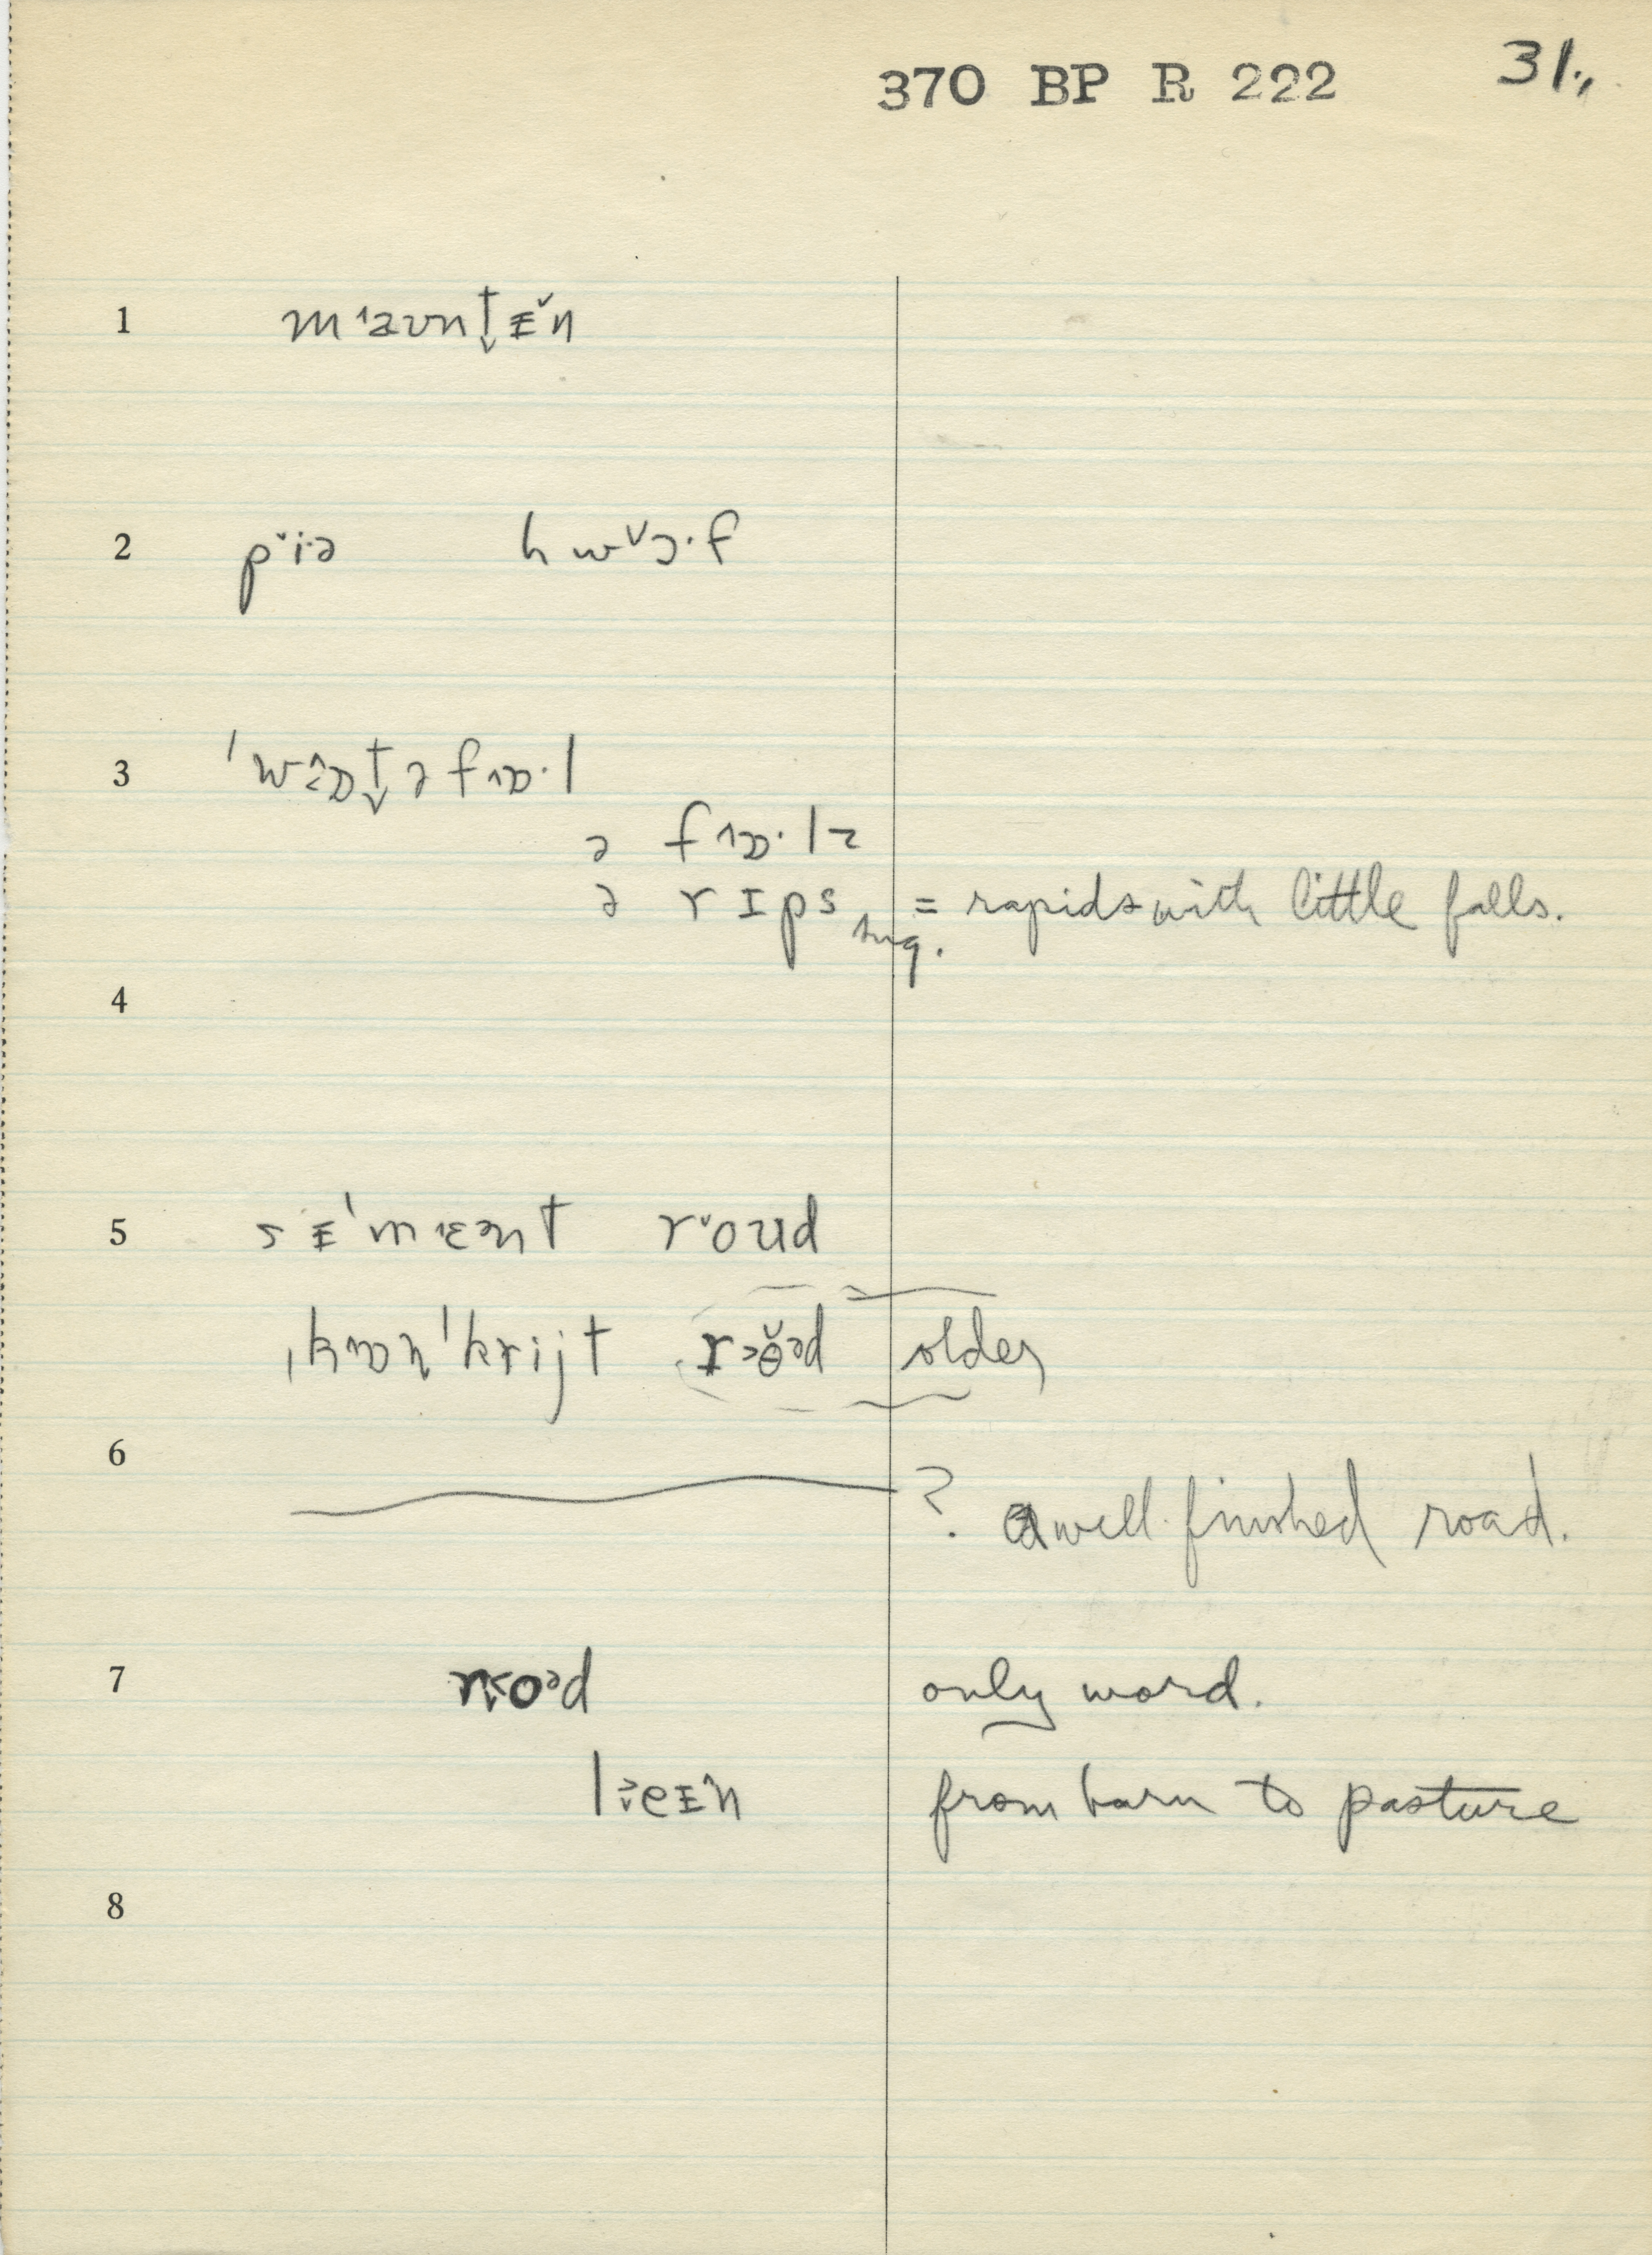 370 BP R 222 31.,
1 mˈaʊnt̬ɨ̌n
2 pˇi·ə hwˇɔ·f
3 ˈwɒt̬ə fɒ·l
ə fɒ·lz
ə rɪps sug. = rapids with little falls.
4
5 sɨˈmɛənt rˇoud
ˌkɒnˈkrijt rɵ̌əd older
6 ? a well-finished road.
7 roəd only word.
leɪn from barn to pasture
8